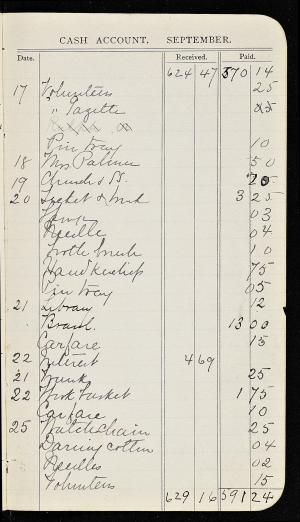 CASH ACCOUNT. SEPTEMBER.
Date. Received. Paid.
624 47 570 14
17 Volunteers 25
" Gazette 25
Pin tray 10
18 Mrs Palmer 50
19 Church & 25
20 3 25
03
Needle 04
Tooth brush 10
Handkerchip 75
Pin tray 05
21 Library 12
Board. 13 00
Carfare 15
22 Interest 4 69
21 Trunk 25
22 Work basket 1 75
Carfare 10
25 Watch chain 25
Darning cotton 04
Needles 02
Volunteers 15
629 16 591 24